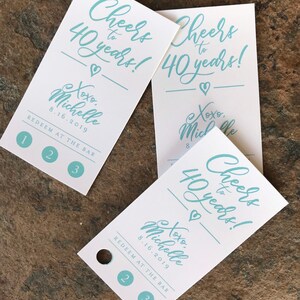 Cheers
to
40 years!
Xoxo,
Michelle
8.16.2019
REDEEM AT THE BAR
1 2 3
Cheers
to
40 years!
Xoxo,
Michelle
8.16.2019
Cheers
to
40 years!
Xoxo,
Michelle
8.16.2019
REDEEM AT THE BAR
2 3